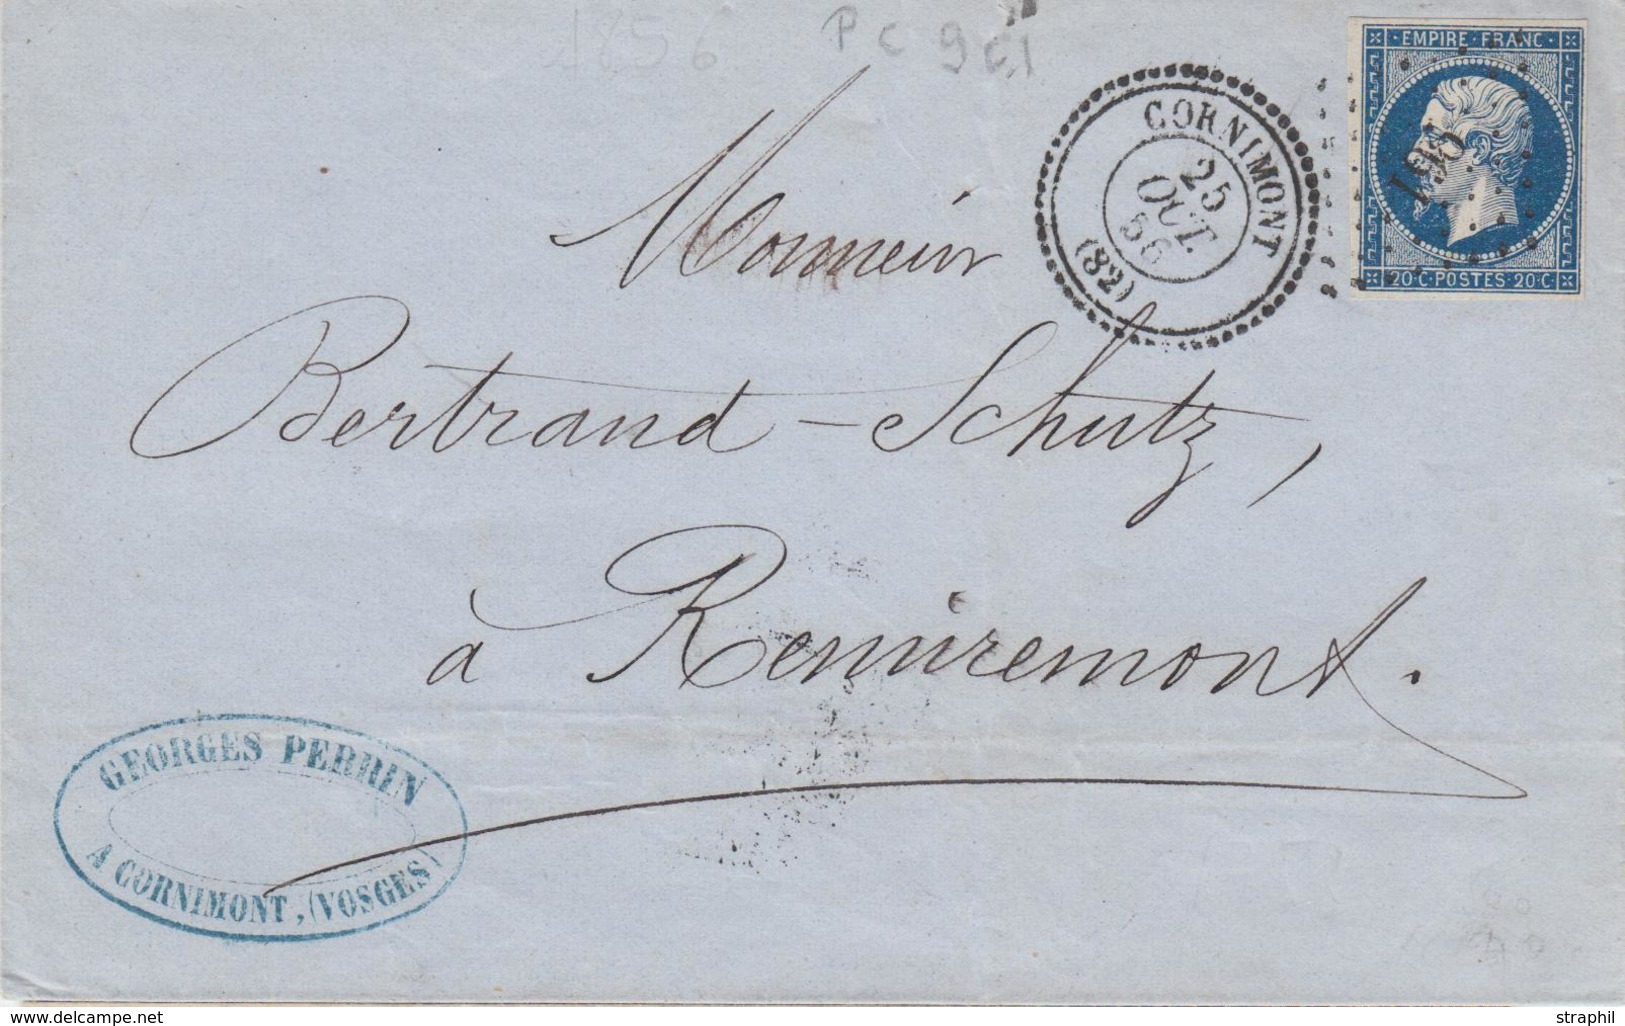 1856 PC 961
EMPIRE · FRANC ·
961
20·C·POSTES·20·C·
CORNIMONT
25
OUT
56
(82)
Monsieur
Bertrand-Schutz,
à Remiremont.
GEORGES PERRIN
A CORNIMONT, (VOSGES)
www.delcampe.net
straphil